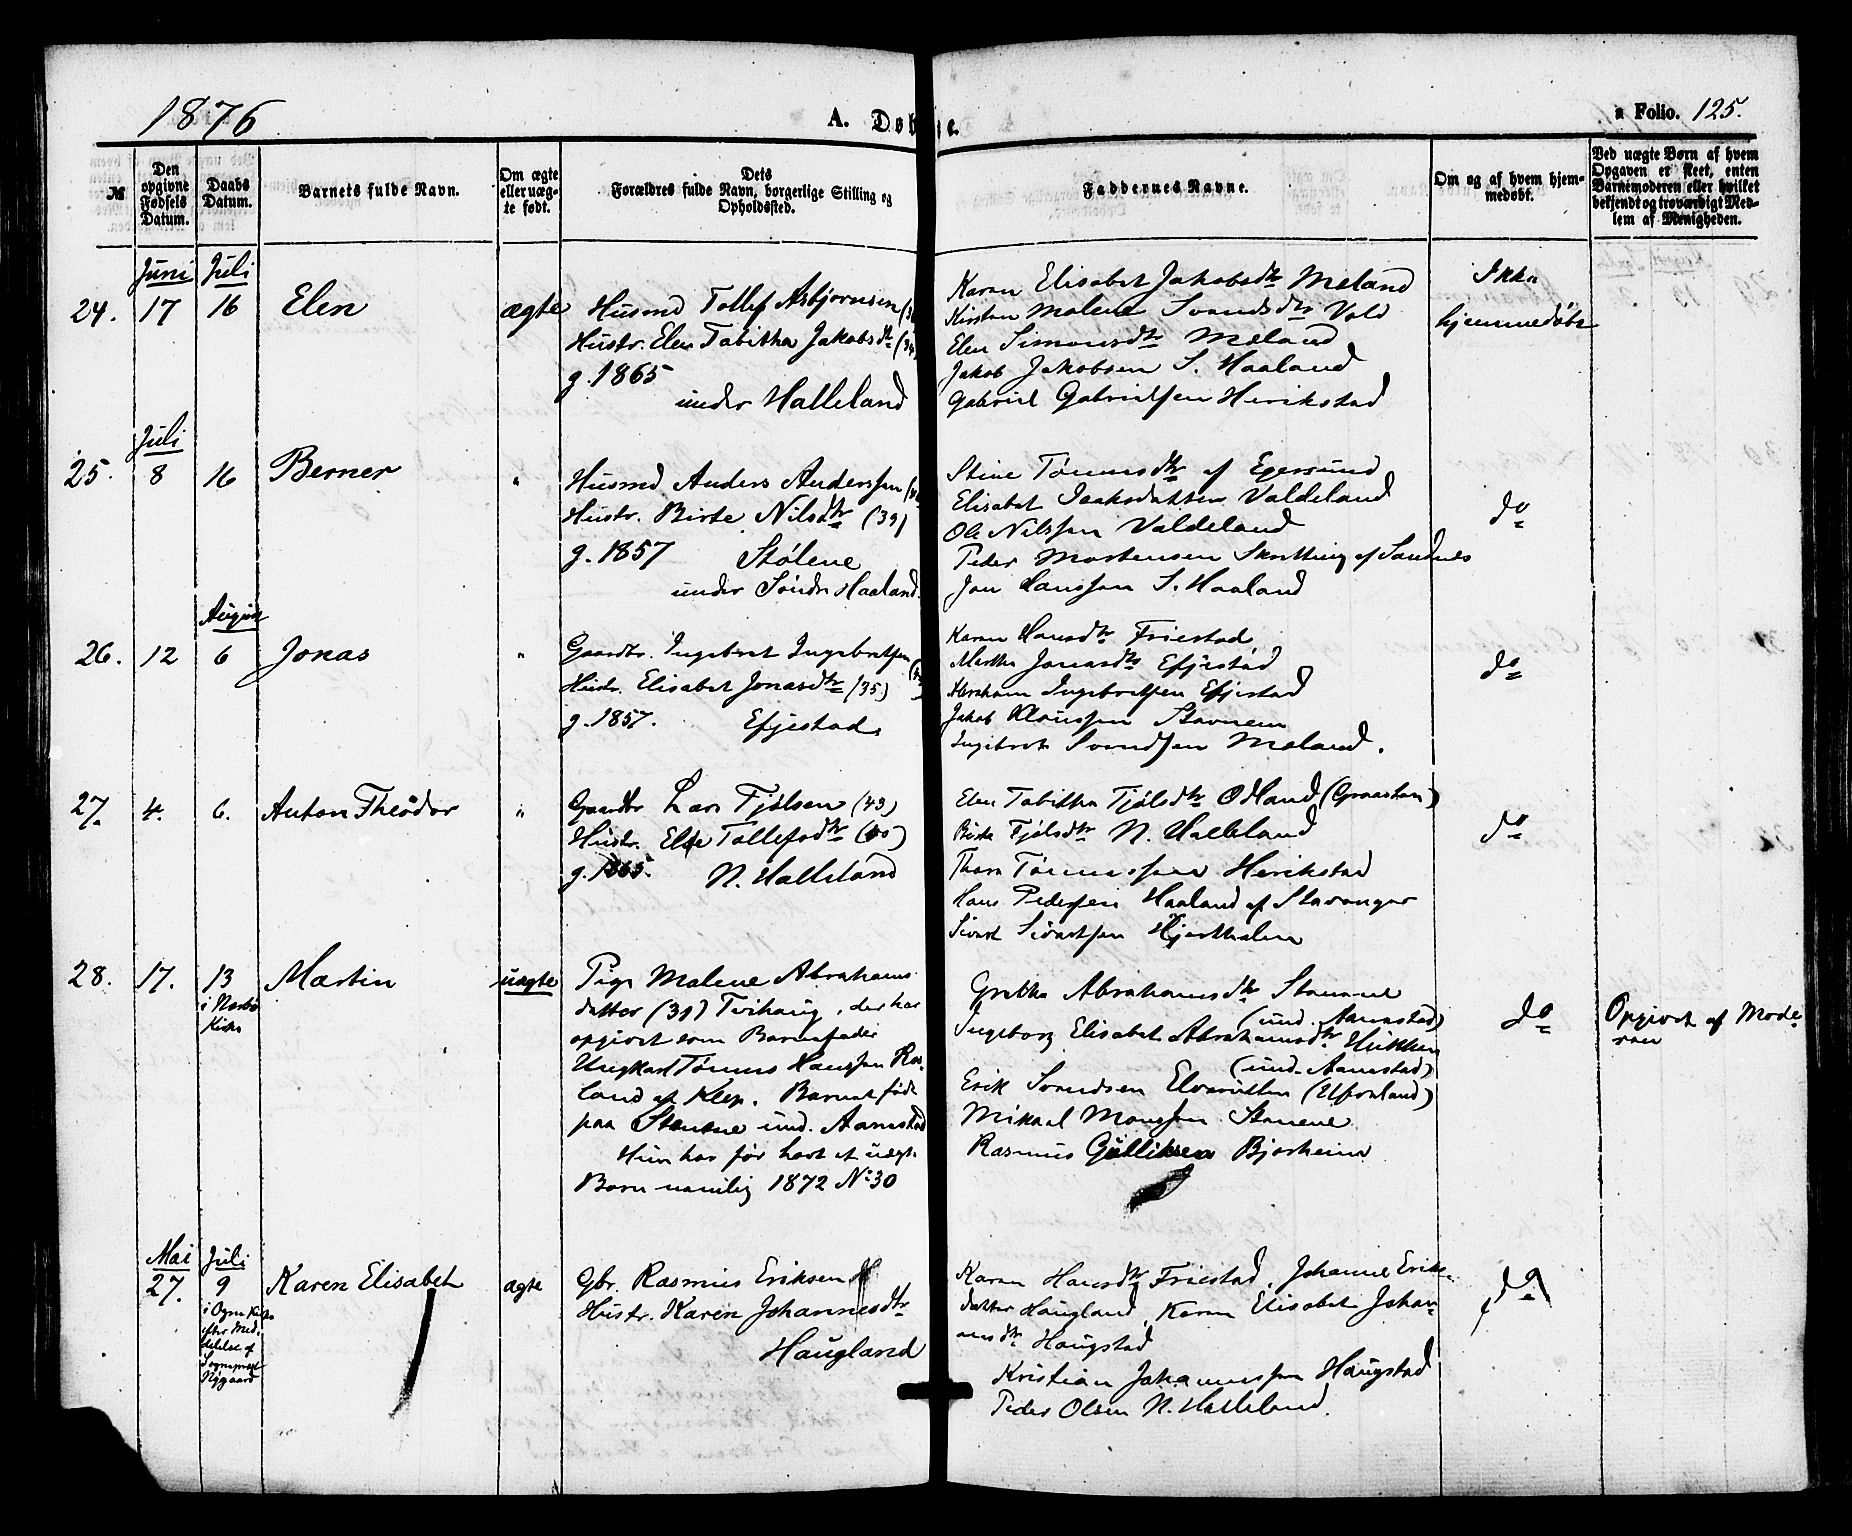 1876
A. Døbte.
a Folio. 125.
№
Den opgivne Fødsels Datum.
Daabs Datum.
Barnets fulde Navn.
Om ægte eller uægte født.
Dets Forældres fulde Navn, borgerlige Stilling og Opholdssted.
Faddernes Navne.
Om og af hvem hjemmedøbt.
Ved uægte Børn af hvem Opgaven er skeet, enten Barnemoderen eller hvilket bekjendt og troværdigt Medlem af Menigheden.
Juni Juli
24. 17 16 Elen ægte
Husmd Tollef Asbjørnsen
Hustr. Elen Tabitha Jakobsdtr (34)
g. 1865
under Halleland
Karen Elisabet Jakobsdtr Meland
Kirsten Malene Svendsdtr Vold
Elen Simonsdtr Meland
Jakob Jakobsen S. Haaland
Gabriel Gabrielsen Herikstad
Ikke
hjemmedøbt
Juli
25. 8 16 Berner "
Husmd Anders Anderssen
Hustr. Birte Nilsdtr (39)
g. 1857 Stølene
under Søndre Haaland
Stine Tønnesdtr af Egersund
Elisabet Isaksdatter Valdeland
Ole Nilssen Valdeland
Peder Mortensen Skretting af Sandnes
Jon Hanssen S. Haaland
do
August
26. 12 6 Jonas "
Gaardbr. Ingebret Ingebretsen
Hustr. Elisabet Jonasdtr (35)
g. 1857. Efjestad
Karen Hansdtr Friestad
Marthe Jonasdtr Efjestad
Abraham Ingebretsen Efjestad
Jakob Klaussen Stavnem
Ingebret Svendsen Meland.
do
27. 4. 6. Anton Theodor "
Gaardbr Lars Fjølsen (43)
Hustr. Else Tollefsdtr (40)
g. 1865. N. Halleland
Elen Tabitha Fjølsdtr Odland (Graasten)
Birte Fjølsdtr N. Halleland
Thore Tønnessen Herikstad
Hans Pedersen Haaland af Stavanger
Sivert Sivertsen
do
28. 17. 13 Martin uægte
i Nærbø
Kirke
Pige Malene Abrahams
datter (31) Tvihaug, der har
opgivet som Barnefader
Ungkarl Tønnes Hanssen
land af Klep. Barnet født
paa Stenene und. Aanestad
Hun har før havt et uægte
Barn nemlig 1872 No 30
Grethe Abrahamsdtr Stenene
(und. Aanestad)
Ingeborg Elisabet Abrahamsdtr
(und. Aanestad)
Erik Svendsen (Ueland)
Mikael Monssen Stenene
Rasmus Gulliksen Bjorheim
do
Opgivet af Mode-
ren
Mai Juli
27. 9 Karen Elisabet ægte
i Ogne Kirke
efter Med-
delelse af
Sogneprest
Nygaard
Gbr. Rasmus Eriksen
Hustr. Karen Johannesdtr
Haugland
Karen Hansdtr Friestad, Johanne Eriks-
datter Haugland, Karen Elisabet Johan-
nesdtr Haugstad
Kristian Johannessen Haugstad
Peder Olsen N. Halleland.
do